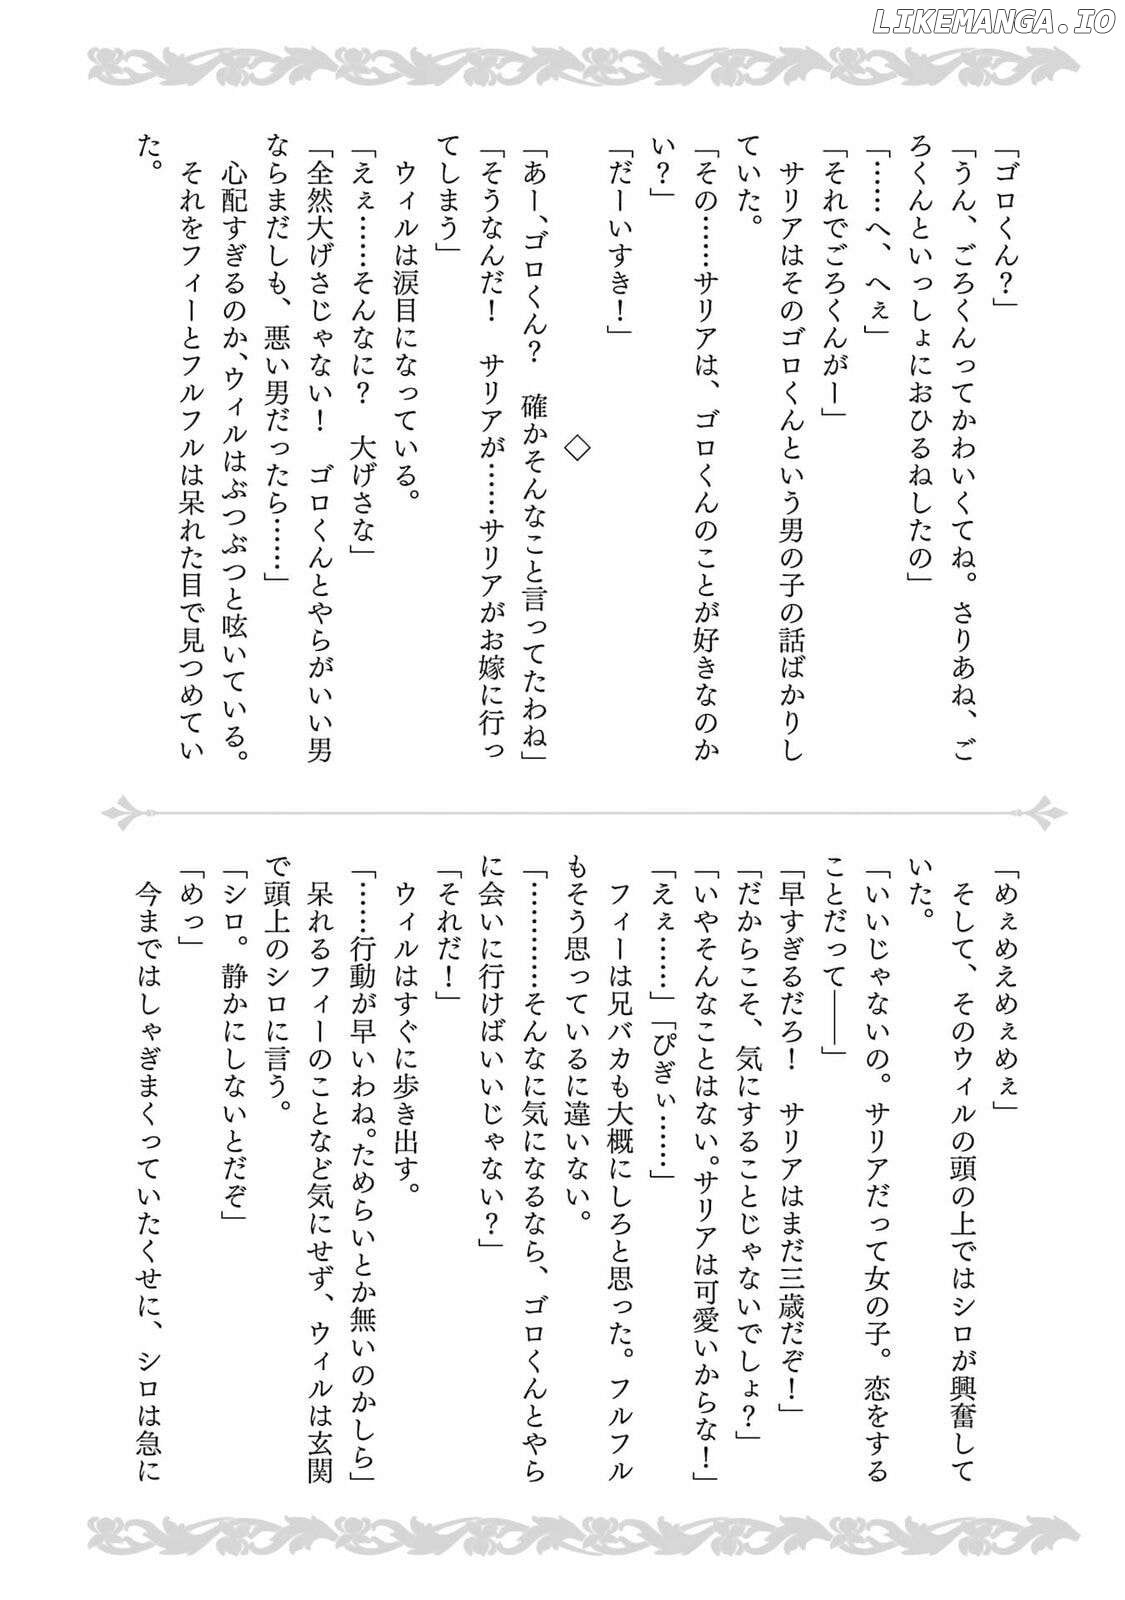 LIKEMANGA.IO
「ゴロくん？」
「うん、ごろくんってかわいくてね。さりあね、ご
ろくんといっしょにおひるねしたの」
「……へ、へぇ」
「それでごろくんがー」
　サリアはそのゴロくんという男の子の話ばかりし
ていた。
「その……サリアは、ゴロくんのことが好きなのか
い？」
「だーいすき！」
◇
「あー、ゴロくん？　確かそんなこと言ってたわね」
「そうなんだ！　サリアが……サリアがお嫁に行っ
てしまう」
　ウィルは涙目になっている。
「えぇ……そんなに？　大げさな」
「全然大げさじゃない！　ゴロくんとやらがいい男
ならまだしも、悪い男だったら……」
　心配すぎるのか、ウィルはぶつぶつと呟いている。
　それをフィーとフルフルは呆れた目で見つめてい
た。
「めぇめえめぇめぇ」
　そして、そのウィルの頭の上ではシロが興奮して
いた。
「いいじゃないの。サリアだって女の子。恋をする
ことだって――」
「早すぎるだろ！　サリアはまだ三歳だぞ！」
「だからこそ、気にすることじゃないでしょ？」
「いやそんなことはない。サリアは可愛いからな！」
「えぇ……」「ぴぎぃ……」
　フィーは兄バカも大概にしろと思った。フルフル
もそう思っているに違いない。
「…………そんなに気になるなら、ゴロくんとやら
に会いに行けばいいじゃない？」
「それだ！」
　ウィルはすぐに歩き出す。
「……行動が早いわね。ためらいとか無いのかしら」
　呆れるフィーのことなど気にせず、ウィルは玄関
で頭上のシロに言う。
「シロ。静かにしないとだぞ」
「めっ」
　今まではしゃぎまくっていたくせに、シロは急に